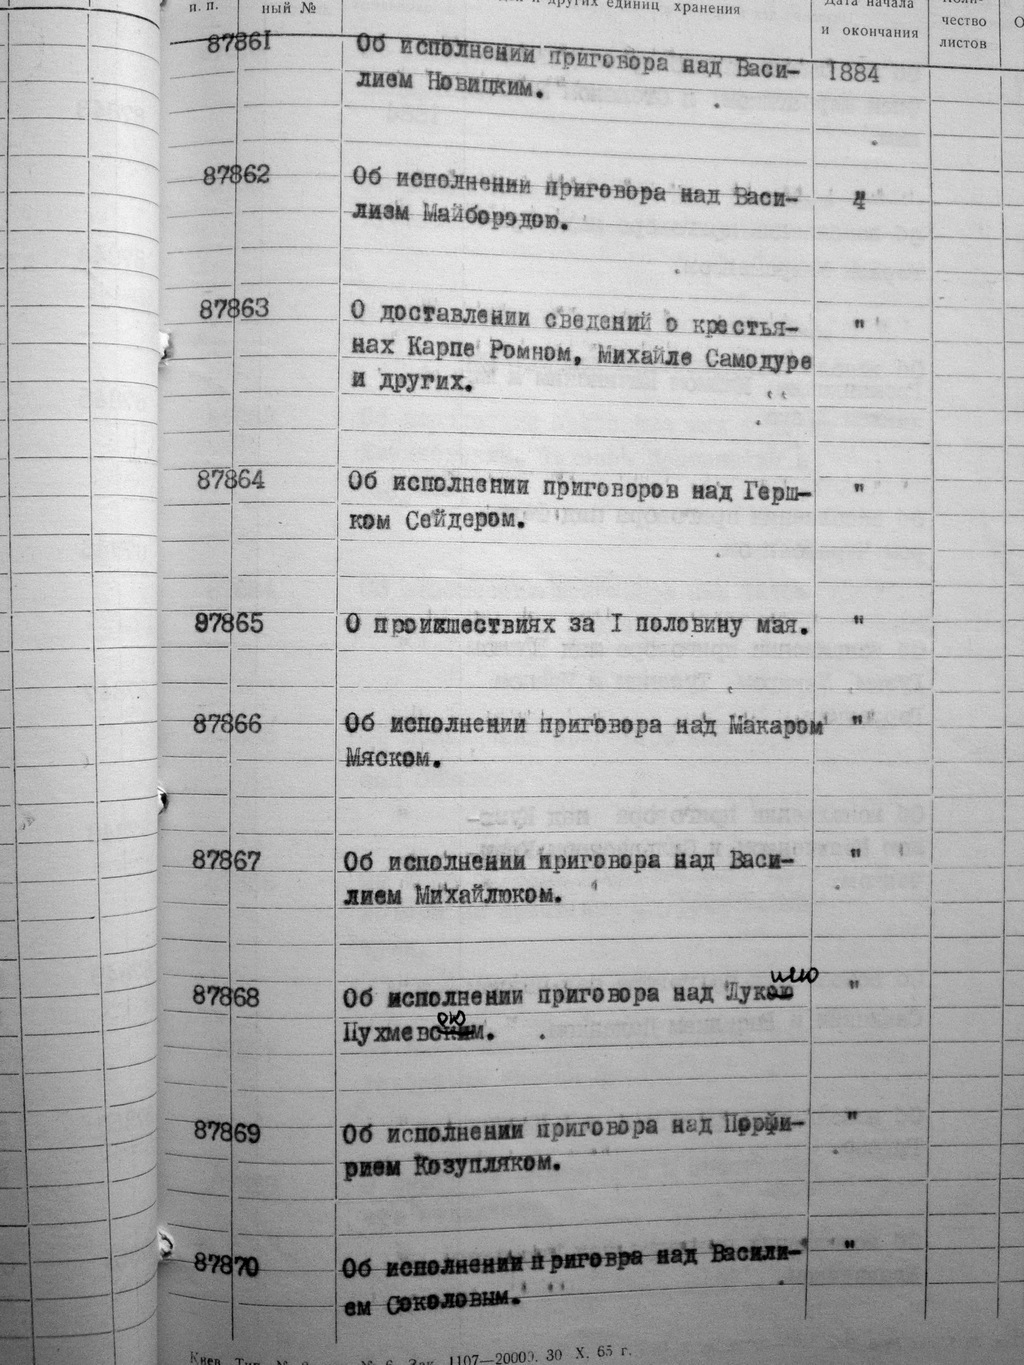 п. п. ный № и других единиц хранения Дата начала и окончания чество листов
87861 Об исполнении приговора над Васи- 1884
лием Новицким.
87862 Об исполнении приговора над Васи- "
лием Майбородою.
87863 О доставлении сведений о крестья- "
нах Карпе Ромном, Михайле Самодуре
и других.
87864 Об исполнении приговоров над Герш- "
ком Сейдером.
87865 О проишествиях за I половину мая. "
87866 Об исполнении приговора над Макаром "
Мяском.
87867 Об исполнении приговора над Васи- "
лием Михайлюком.
87868 Об исполнении приговора над Лукою "
Пухмевским.
87869 Об исполнении приговора над Порфи- "
рием Козупляком.
87870 Об исполнении приговра над Васили- "
ем Соколовым.
Киев Тип. Зак. 1107—20000. 30 X. 65 г.